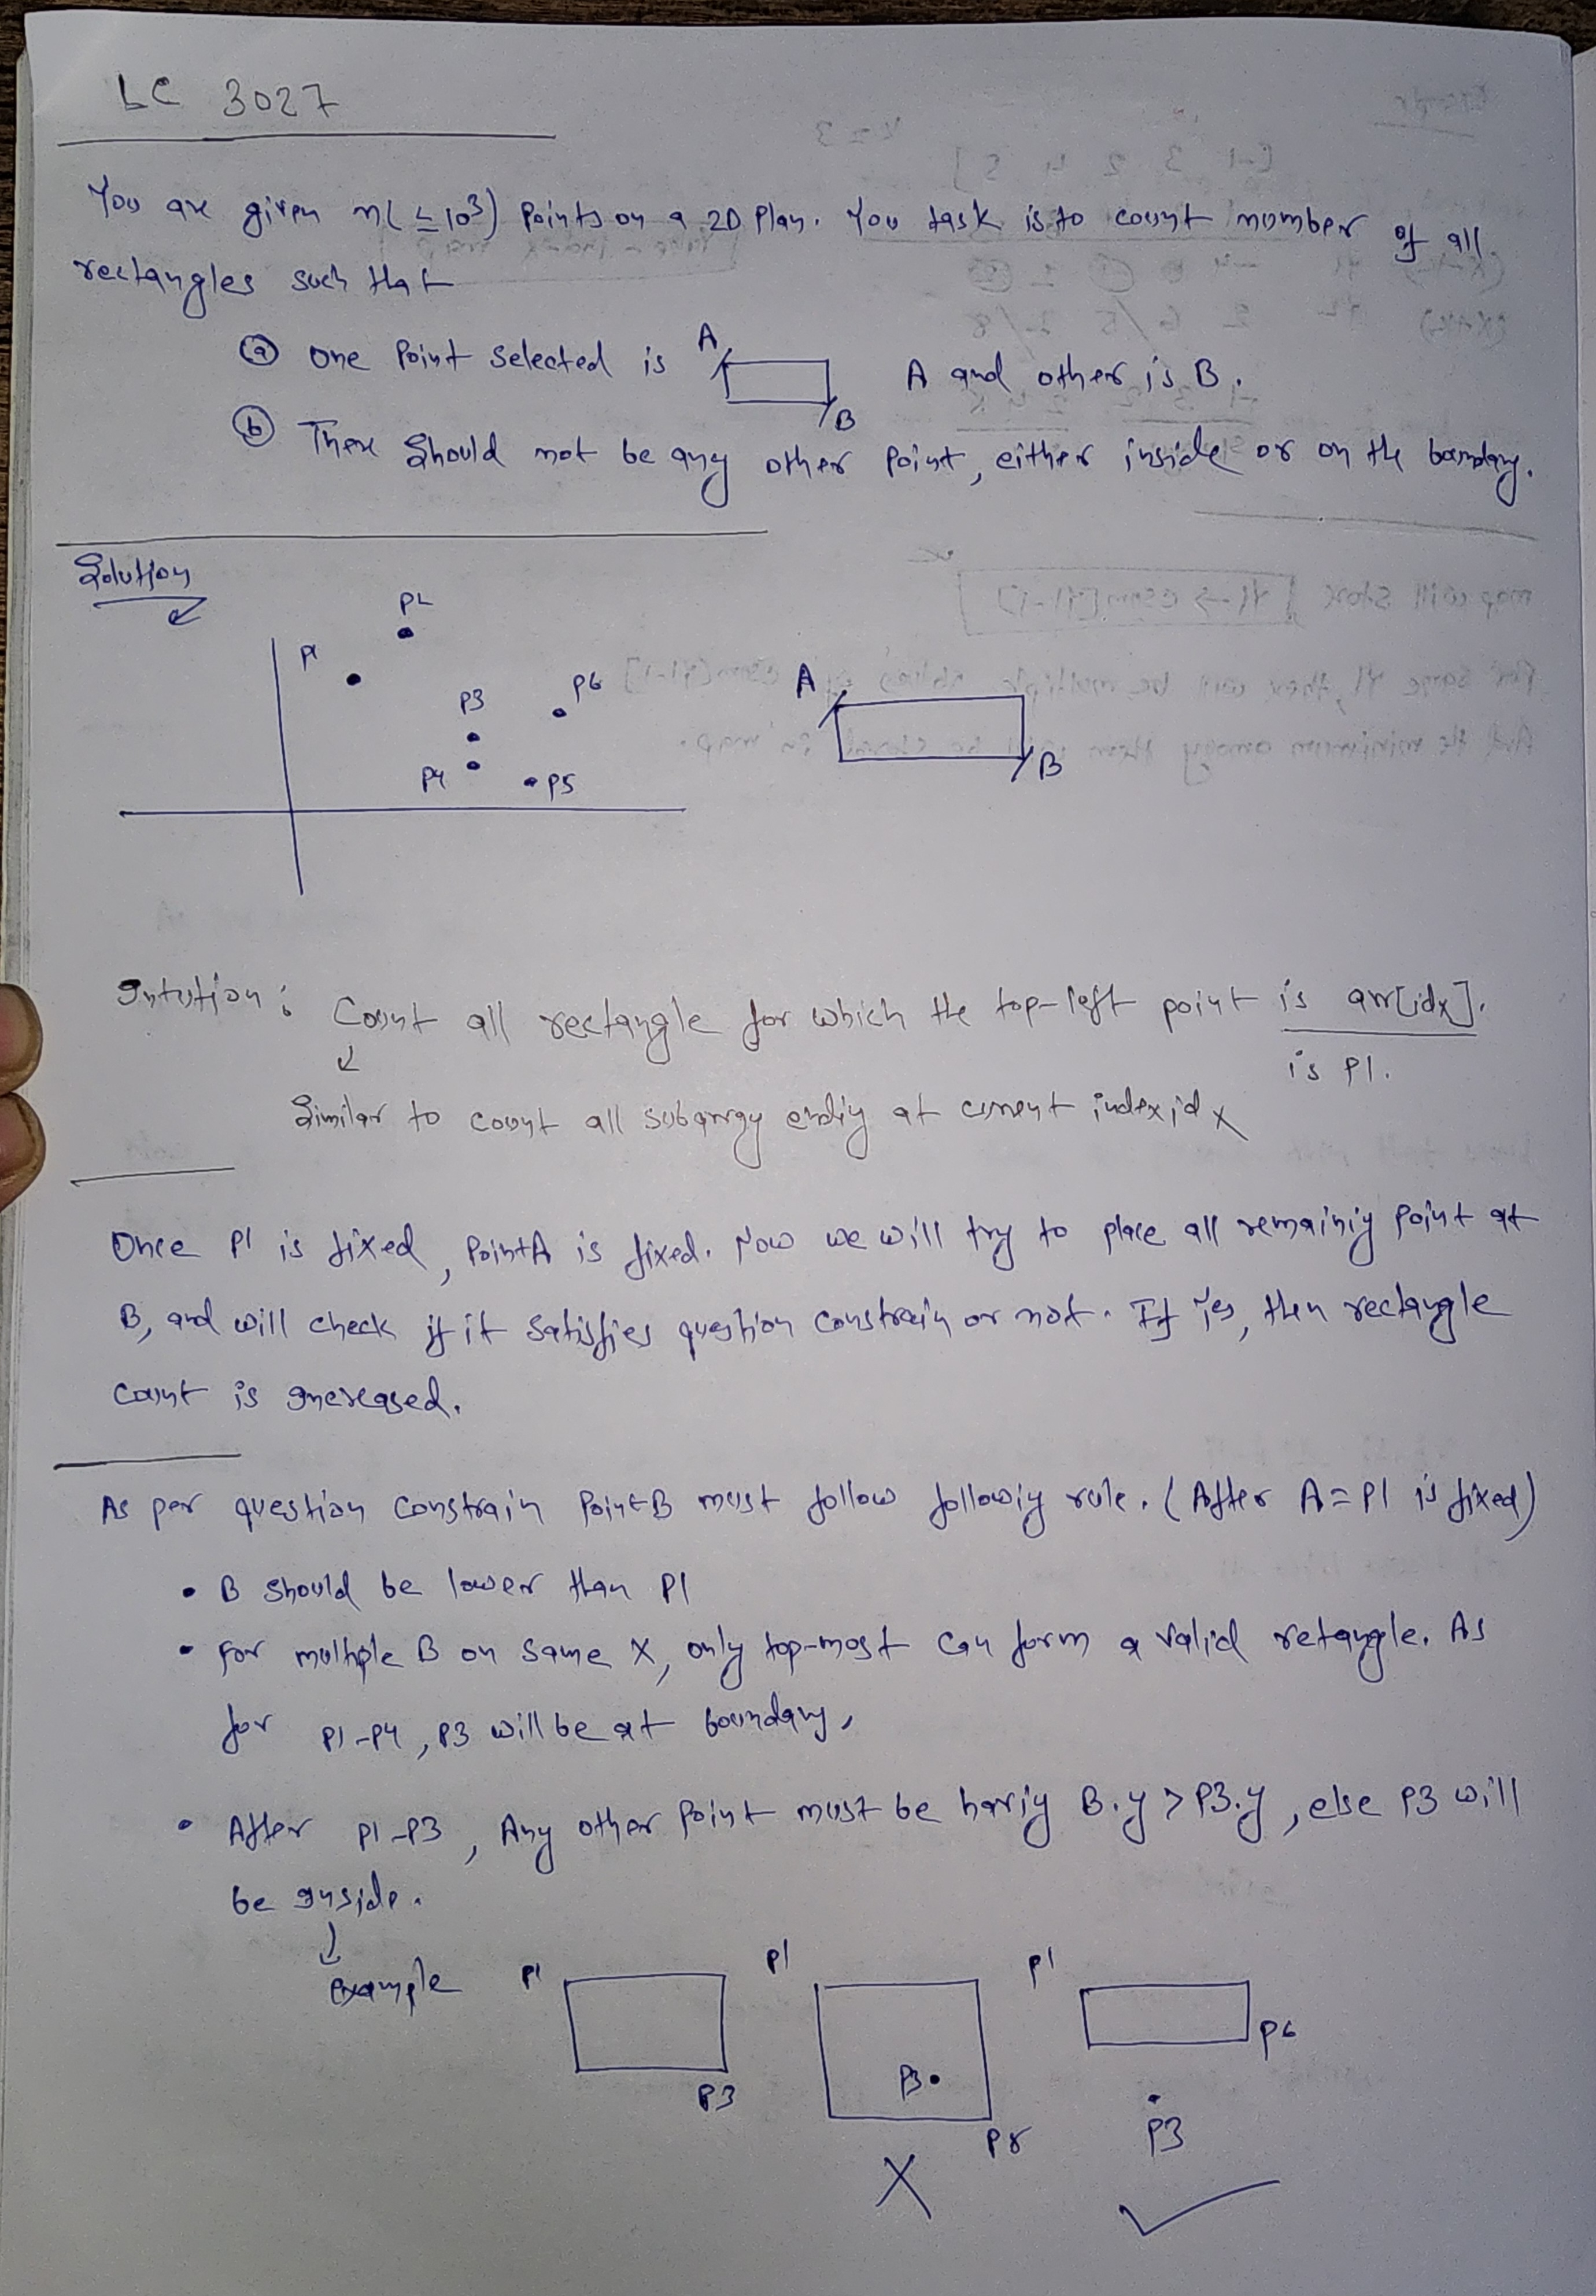 LC 3027
You are given n(≤10³) points on a 2D plan. You task is to count number of all
rectangles such that
(a) One Point selected is A B A and other is B.
(b) There should not be any other point, either inside or on the boundary.
Solution
P2
P1
P3
P6
P4
P5
A
B
Intution : Count all rectangle for which the top-left point is arr[idx].
is P1.
Similar to count all subarray ending at current index idx
Once P1 is fixed, Point A is fixed. Now we will try to place all remainig point at
B, and will check if it satisfies question constrain or not. If Yes, then rectangle
count is increased.
As per question constrain Point B must follow followig rule. (After A=P1 is fixed)
• B should be lower than P1
• For multiple B on same X, only top-most can form a valid retangle. As
for P1-P4, P3 will be at boundary,
• After P1-P3, Any other Point must be havig B.y > P3.y, else P3 will
be inside.
example
P1
P3
P1
P3
P1
P6
P3
X